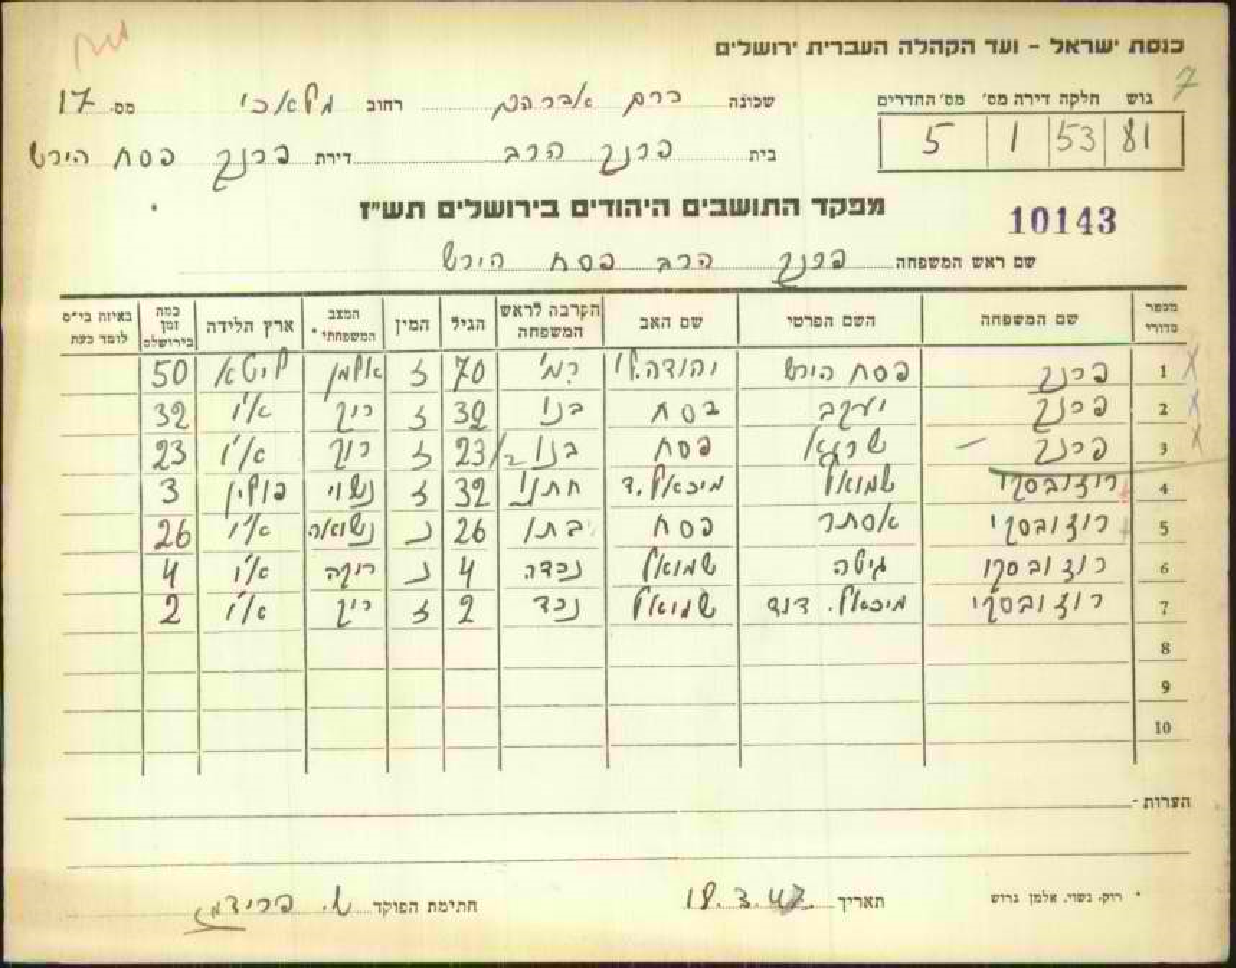 כנסת ישראל - ועד הקהלה העברית ירושלים
7
גוש חלקה דירה מס' מס' החדרים
81 53 1 5
שכונה כרם אברהם רחוב מלאכי מס. 17
בית פרנק הרב דירת פרנק פסח הירש
מפקד התושבים היהודים בירושלים תש"ז
10143
שם ראש המשפחה פרנק הרב פסח הירש
מספר סדורי שם המשפחה השם הפרטי שם האב הקרבה לראש המשפחה הגיל המין המצב המשפחתי * ארץ הלידה כמה זמן בירושלם באיזה בי"ס לומד כעת
1 פרנק פסח הירש יהודה.ל רמ' 70 ז אלמן ליטא 50
2 פרנק יעקב פסח בנו 32 ז ריק א"י 32
3 פרנק שרגא פסח בנו 23 ז רוק א"י 23
4 רוזובסקי שמואל מיכאל.ד חתנו 32 ז נשוי פולין 3
5 רוזובסקי אסתר פסח בתו 26 נ נשואה א"י 26
6 רוזובסקי גיטה שמואל נכדה 4 נ ריקה א"י 4
7 רוזובסקי מיכאל. דוד שמואל נכד 2 ז ריק א"י 2
8
9
10
הערות -
* רוק, נשוי, אלמן גרוש תאריך 18.3.47 חתימת הפוקד ש. פרידמן